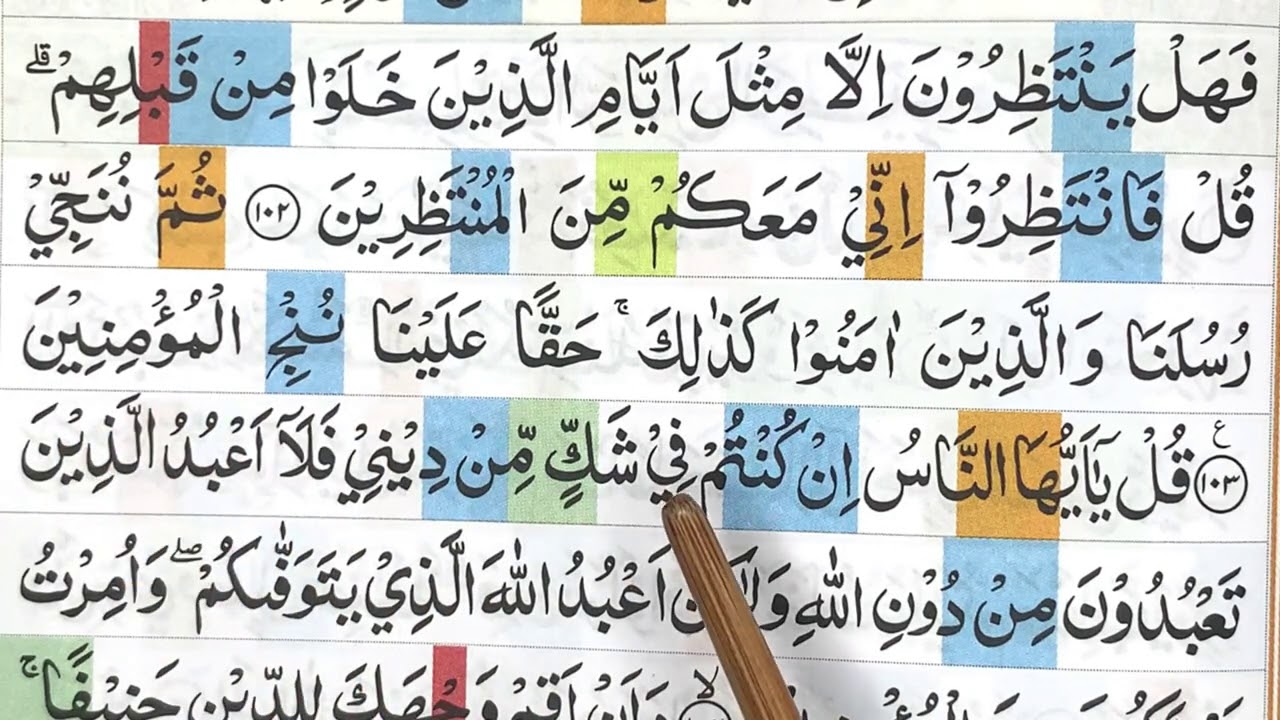 فَهَلْ يَنْتَظِرُوْنَ اِلَّا مِثْلَ اَيَّامِ الَّذِيْنَ خَلَوْا مِنْ قَبْلِهِمْ ۗ
قُلْ فَانْتَظِرُوْٓا اِنِّيْ مَعَكُمْ مِّنَ الْمُنْتَظِرِيْنَ ١٠٢ ثُمَّ نُنَجِّيْ
رُسُلَنَا وَالَّذِيْنَ اٰمَنُوْا كَذٰلِكَ ۚ حَقًّا عَلَيْنَا نُنْجِ الْمُؤْمِنِيْنَ
١٠٣ ع قُلْ يٰٓاَيُّهَا النَّاسُ اِنْ كُنْتُمْ فِيْ شَكٍّ مِّنْ دِيْنِيْ فَلَآ اَعْبُدُ الَّذِيْنَ
تَعْبُدُوْنَ مِنْ دُوْنِ اللّٰهِ وَلٰكِنْ اَعْبُدُ اللّٰهَ الَّذِيْ يَتَوَفّٰىكُمْ ۖ وَاُمِرْتُ
وَاَنْ اَقِمْ وَجْهَكَ لِلدِّيْنِ حَنِيْفًا ۚ